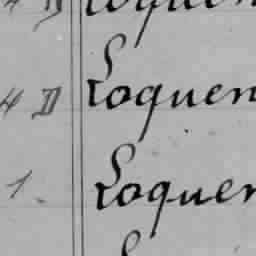 4 D Loquen
4 D Loquen
1. Loquen